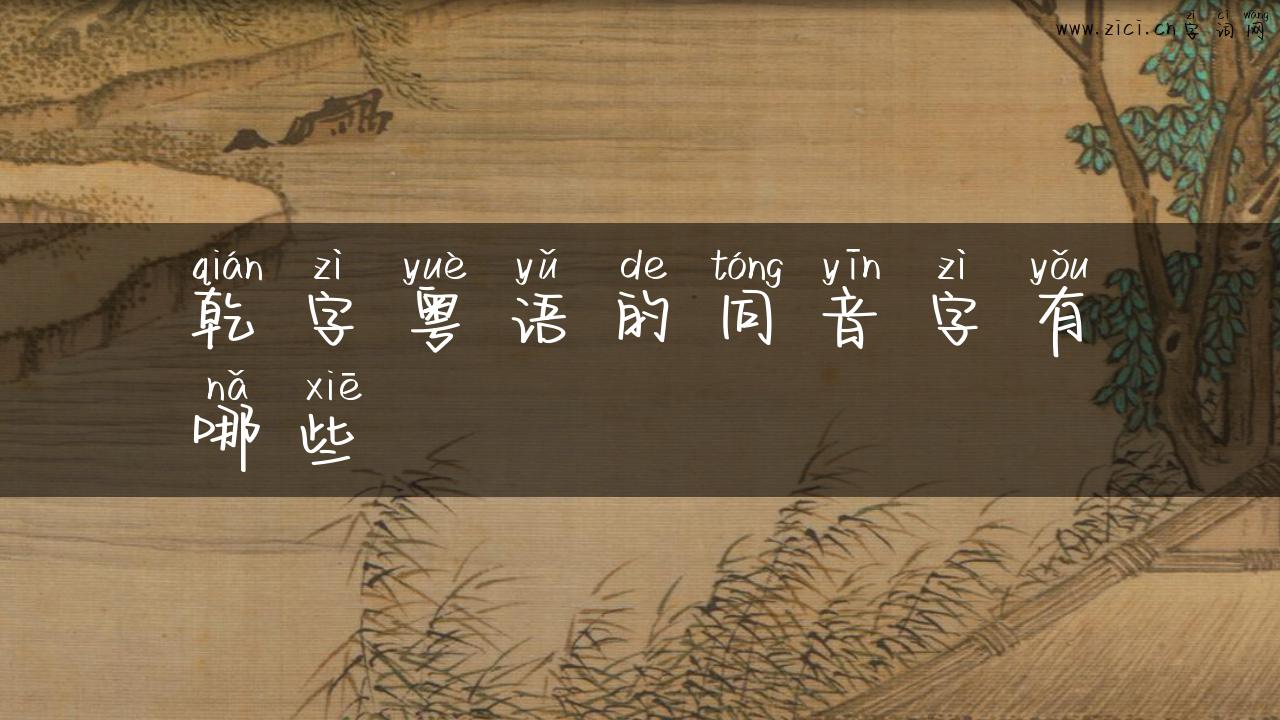 zì cí wǎng
www.zici.cn字词网
qián zì yuè yǔ de tóng yīn zì yǒu
乾字粤语的同音字有
nǎ xiē
哪些